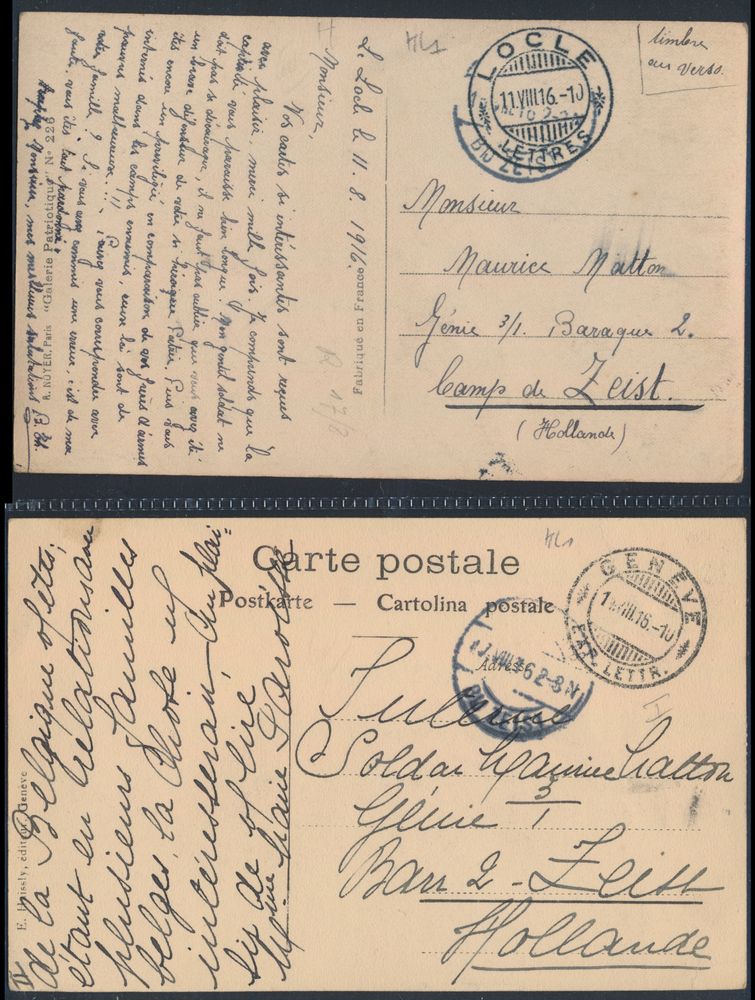 Le Locle le 11. 8. 1916.
Monsieur,
Vos cartes si intéressantes sont reçues
avec plaisir, merci mille fois. Je comprends que la
captivité vous paraisse bien longue. Mon gentil soldat ne
doit pas se décourager, il ne faut pas oublier que vous avez été
un brave défenseur de votre si héroïque Patrie, Puis vous
êtes encore un privilégié en comparaison de vos frères d'armes
internés dans les camps ennemis, ceux là sont de
pauvres malheureux!!!
votre famille? Si vous avez commis une erreur, c'est de ma
faute. vous êtes tout pardonné.
Monsieur, mes meilleures salutations
A. NOYER, Paris "Galerie Patriotique" N° 226
Fabriqué en France
R 17/8
H
HL1
LOCLE
11.VIII.16.-10
LETTRES
ZEIST
timbre
au verso.
Monsieur
Maurice Matton
Génie 3/1. Baraque 2.
Camp de Zeist.
(Hollande)
II
de la Belgique et,
étant en relations avec
plusieurs familles
belges, la chose m'
intéresserait. Au plai-
sir de vous lire
Mme Marie
E. Haissly, éditeur, Genève
HL1
Carte postale
Postkarte — Cartolina postale
Adresse
GENÈVE
11.VIII.16.-10
EXP. LETTR.
VIII 16 2-3N
ZEIST
H
Interné
Soldat Maurice Matton
Génie 3/1
Bar 2 - Zeist
Hollande